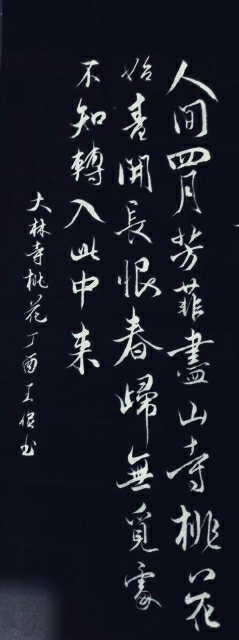 人間四月芳菲盡山寺桃花
始盛開長恨春歸無覓處
不知轉入此中来
大林寺桃花丁酉王书